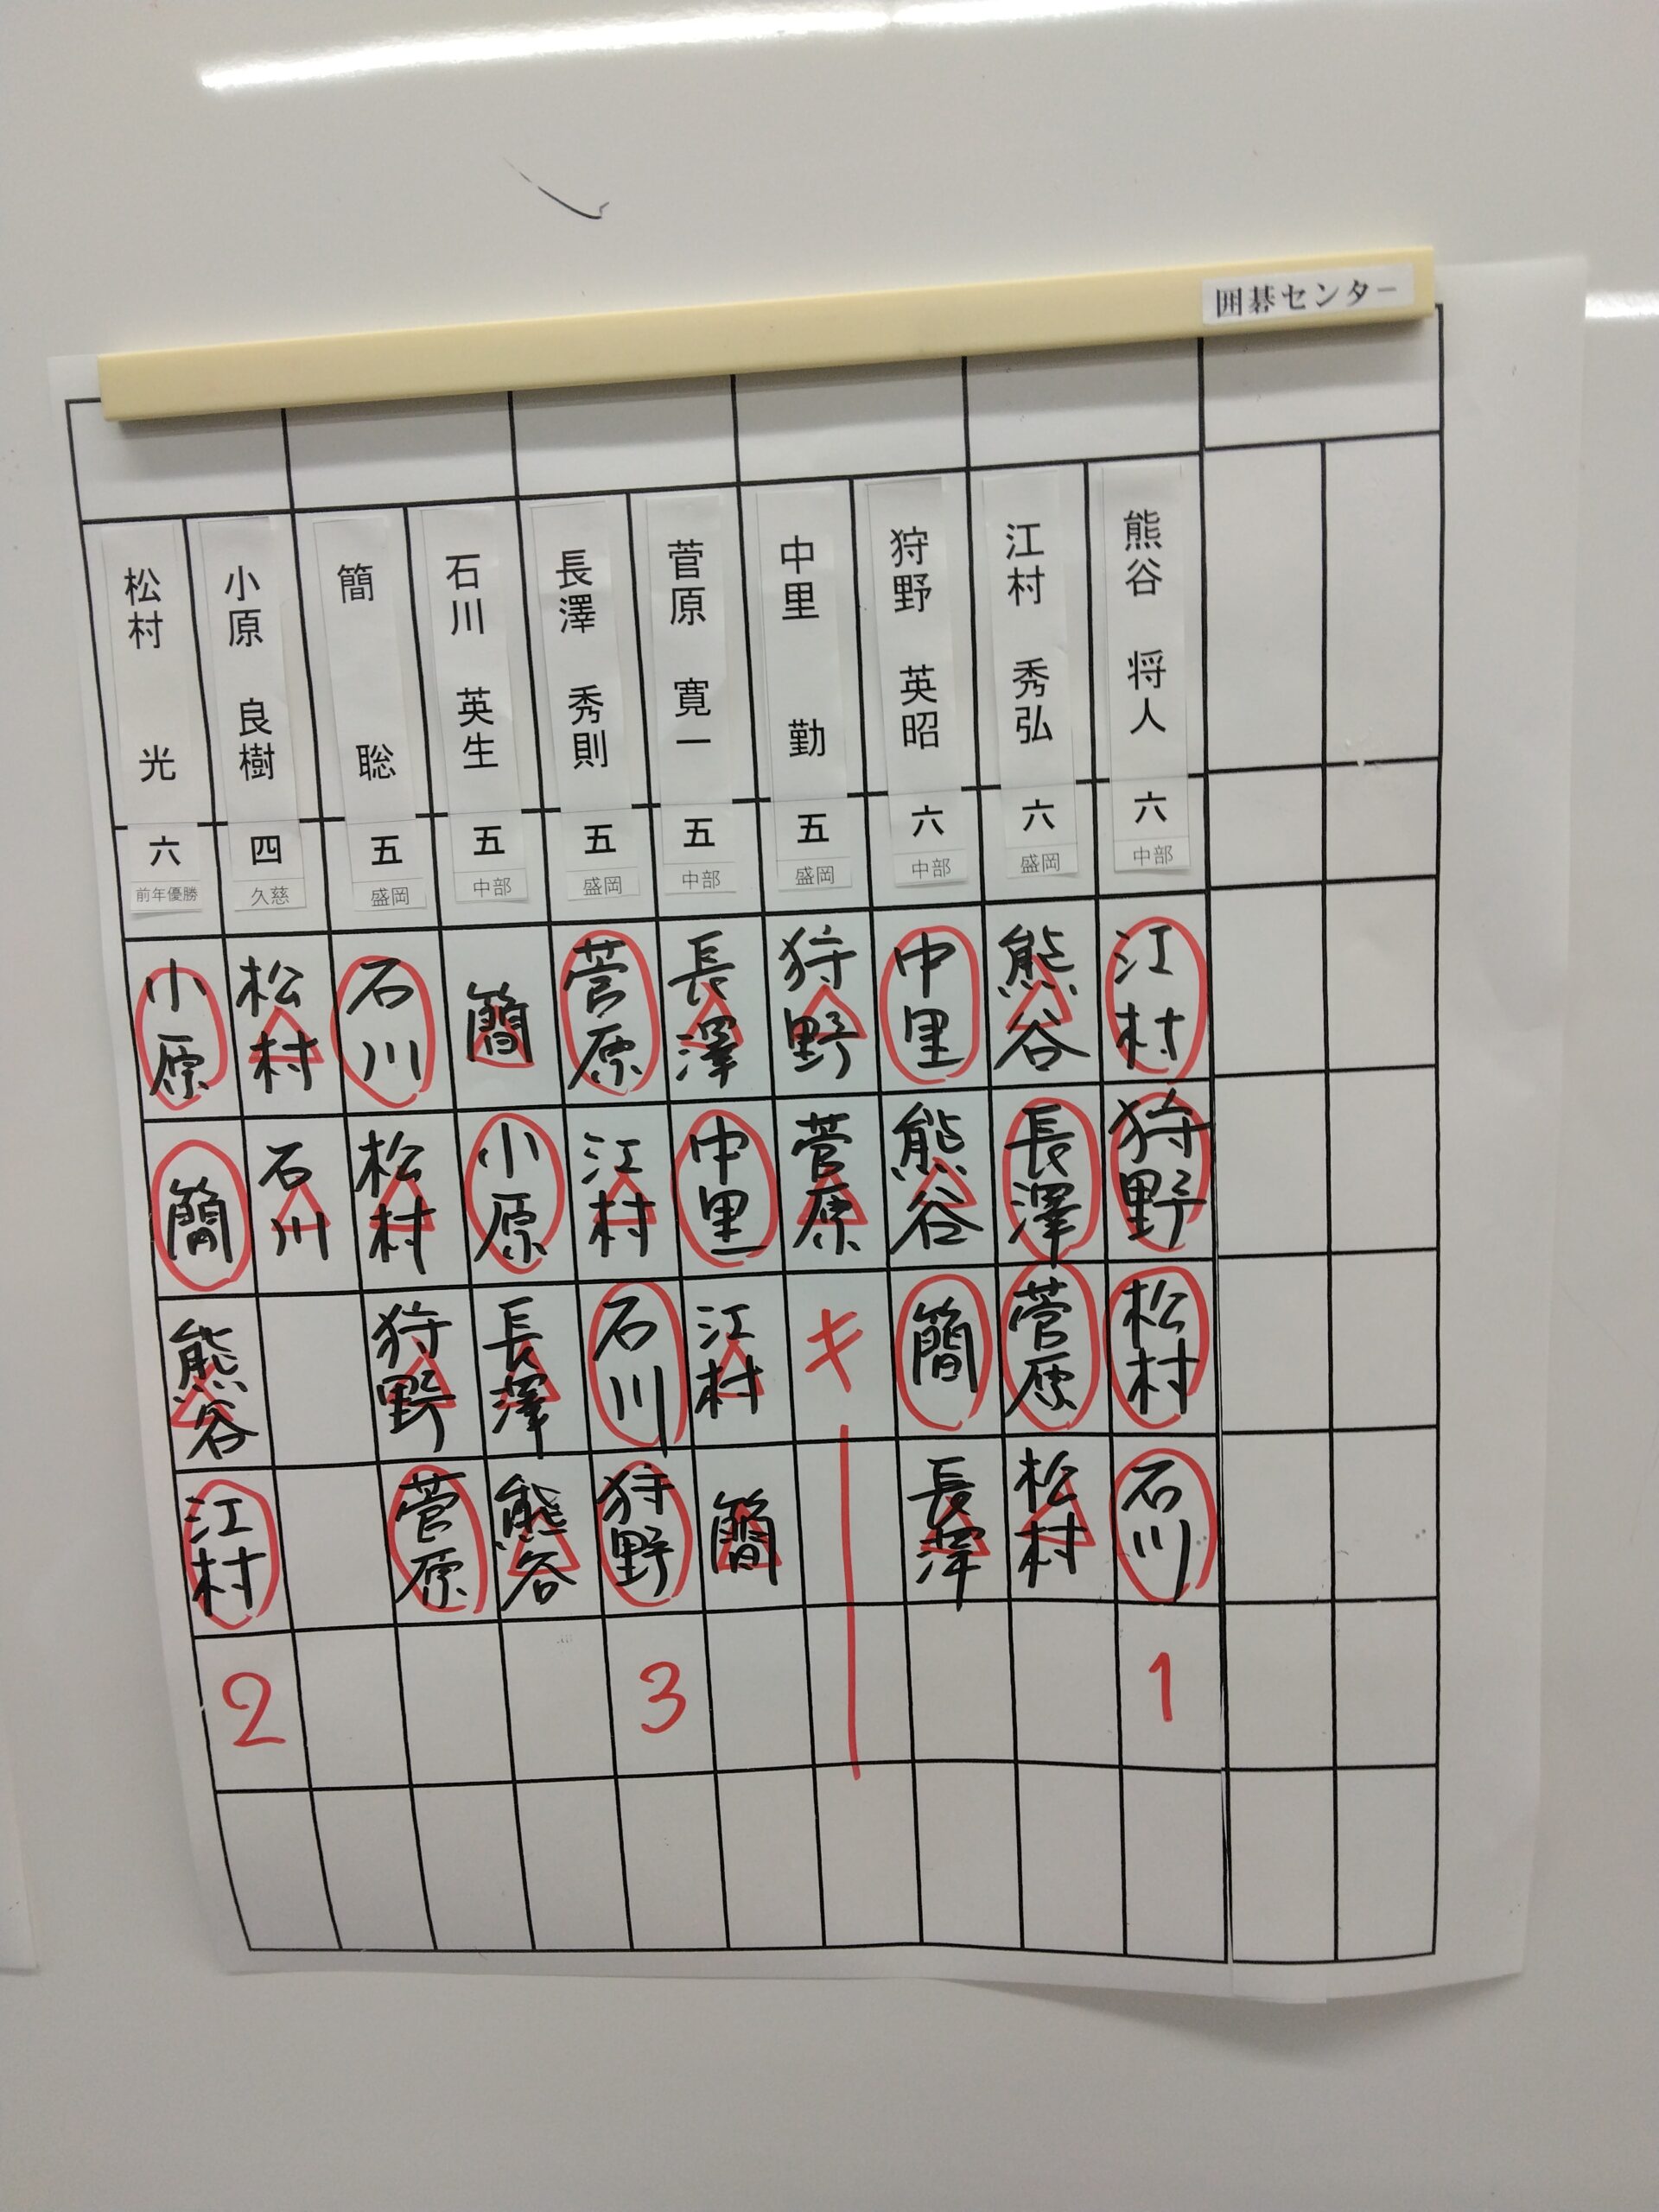 囲碁センター
熊谷 将人
六
中部
江村
狩野
松村
石川
1
江村 秀弘
六
盛岡
熊谷
長澤
菅原
松村
狩野 英昭
六
中部
中里
熊谷
簡
長澤
中里 勤
五
盛岡
狩野
菅原
キ
菅原 寛一
五
中部
長澤
中里
江村
簡
長澤 秀則
五
盛岡
菅原
江村
石川
狩野
3
石川 英生
五
中部
簡
小原
長澤
熊谷
簡 聡
五
盛岡
石川
松村
狩野
菅原
小原 良樹
四
久慈
松村
石川
松村 光
六
前年優勝
小原
簡
熊谷
江村
2